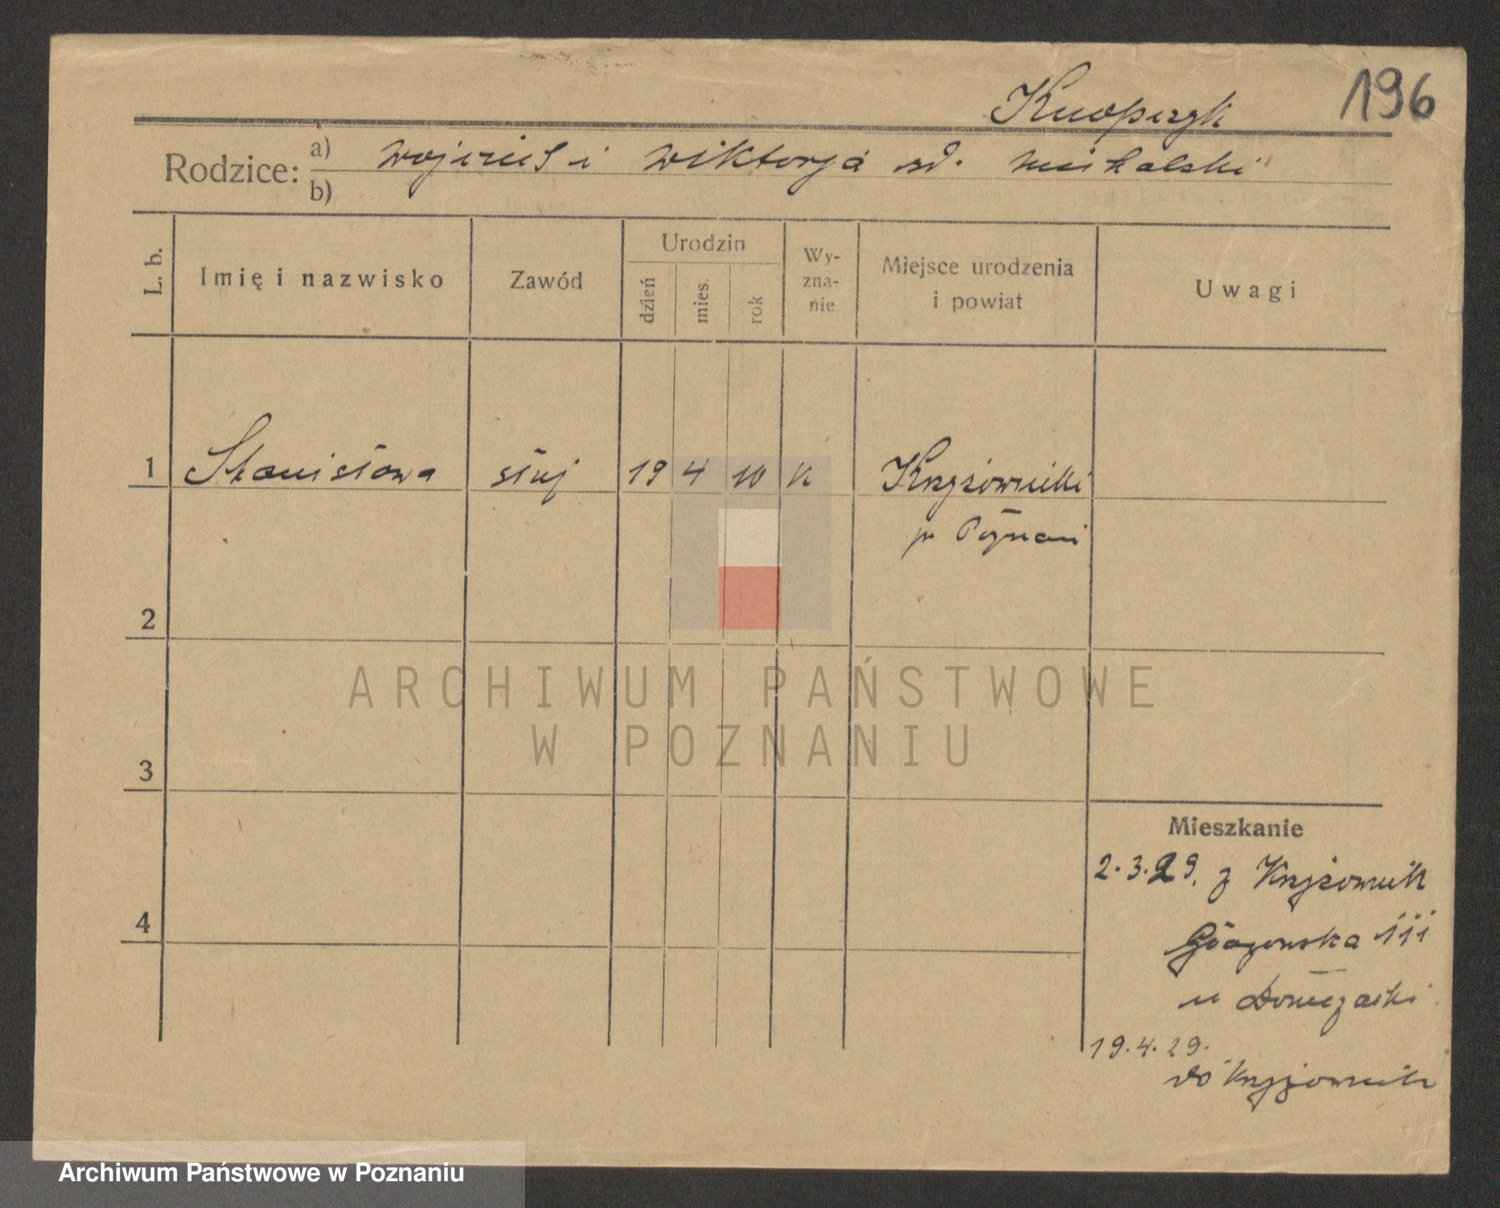 Knopczyk 196
Rodzice: a) Wojciech i Wiktorja
b)
L. b.
Imię i nazwisko
Zawód
Urodzin
dzień
mies.
rok
Wy-
zna-
nie
Miejsce urodzenia
i powiat
Uwagi
1 Stanisława służ 19 4 10 K Krzyżowniki
p. Poznań
2
3
4
Mieszkanie
2.3.29. z Krzyżownik
111
u
19.4.29.
do Krzyżownik
ARCHIWUM PAŃSTWOWE
W POZNANIU
Archiwum Państwowe w Poznaniu